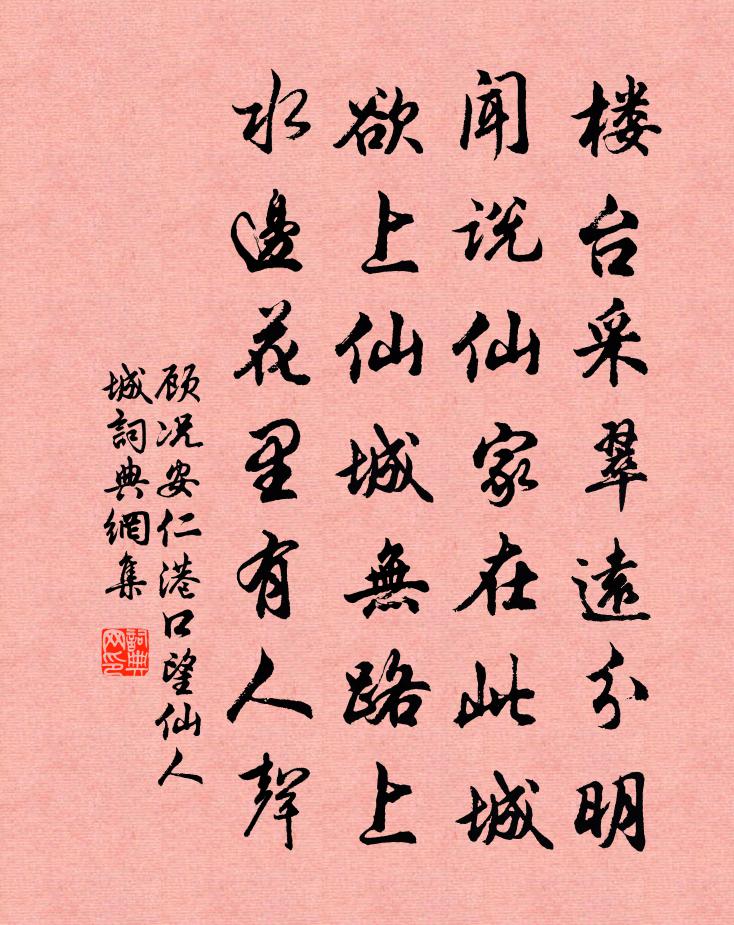 楼台采翠遠分明
闻说仙家在此城
欲上仙城無路上
水邊花里有人聲
顾况安仁港口望仙人
城詞典網集
詞典网印